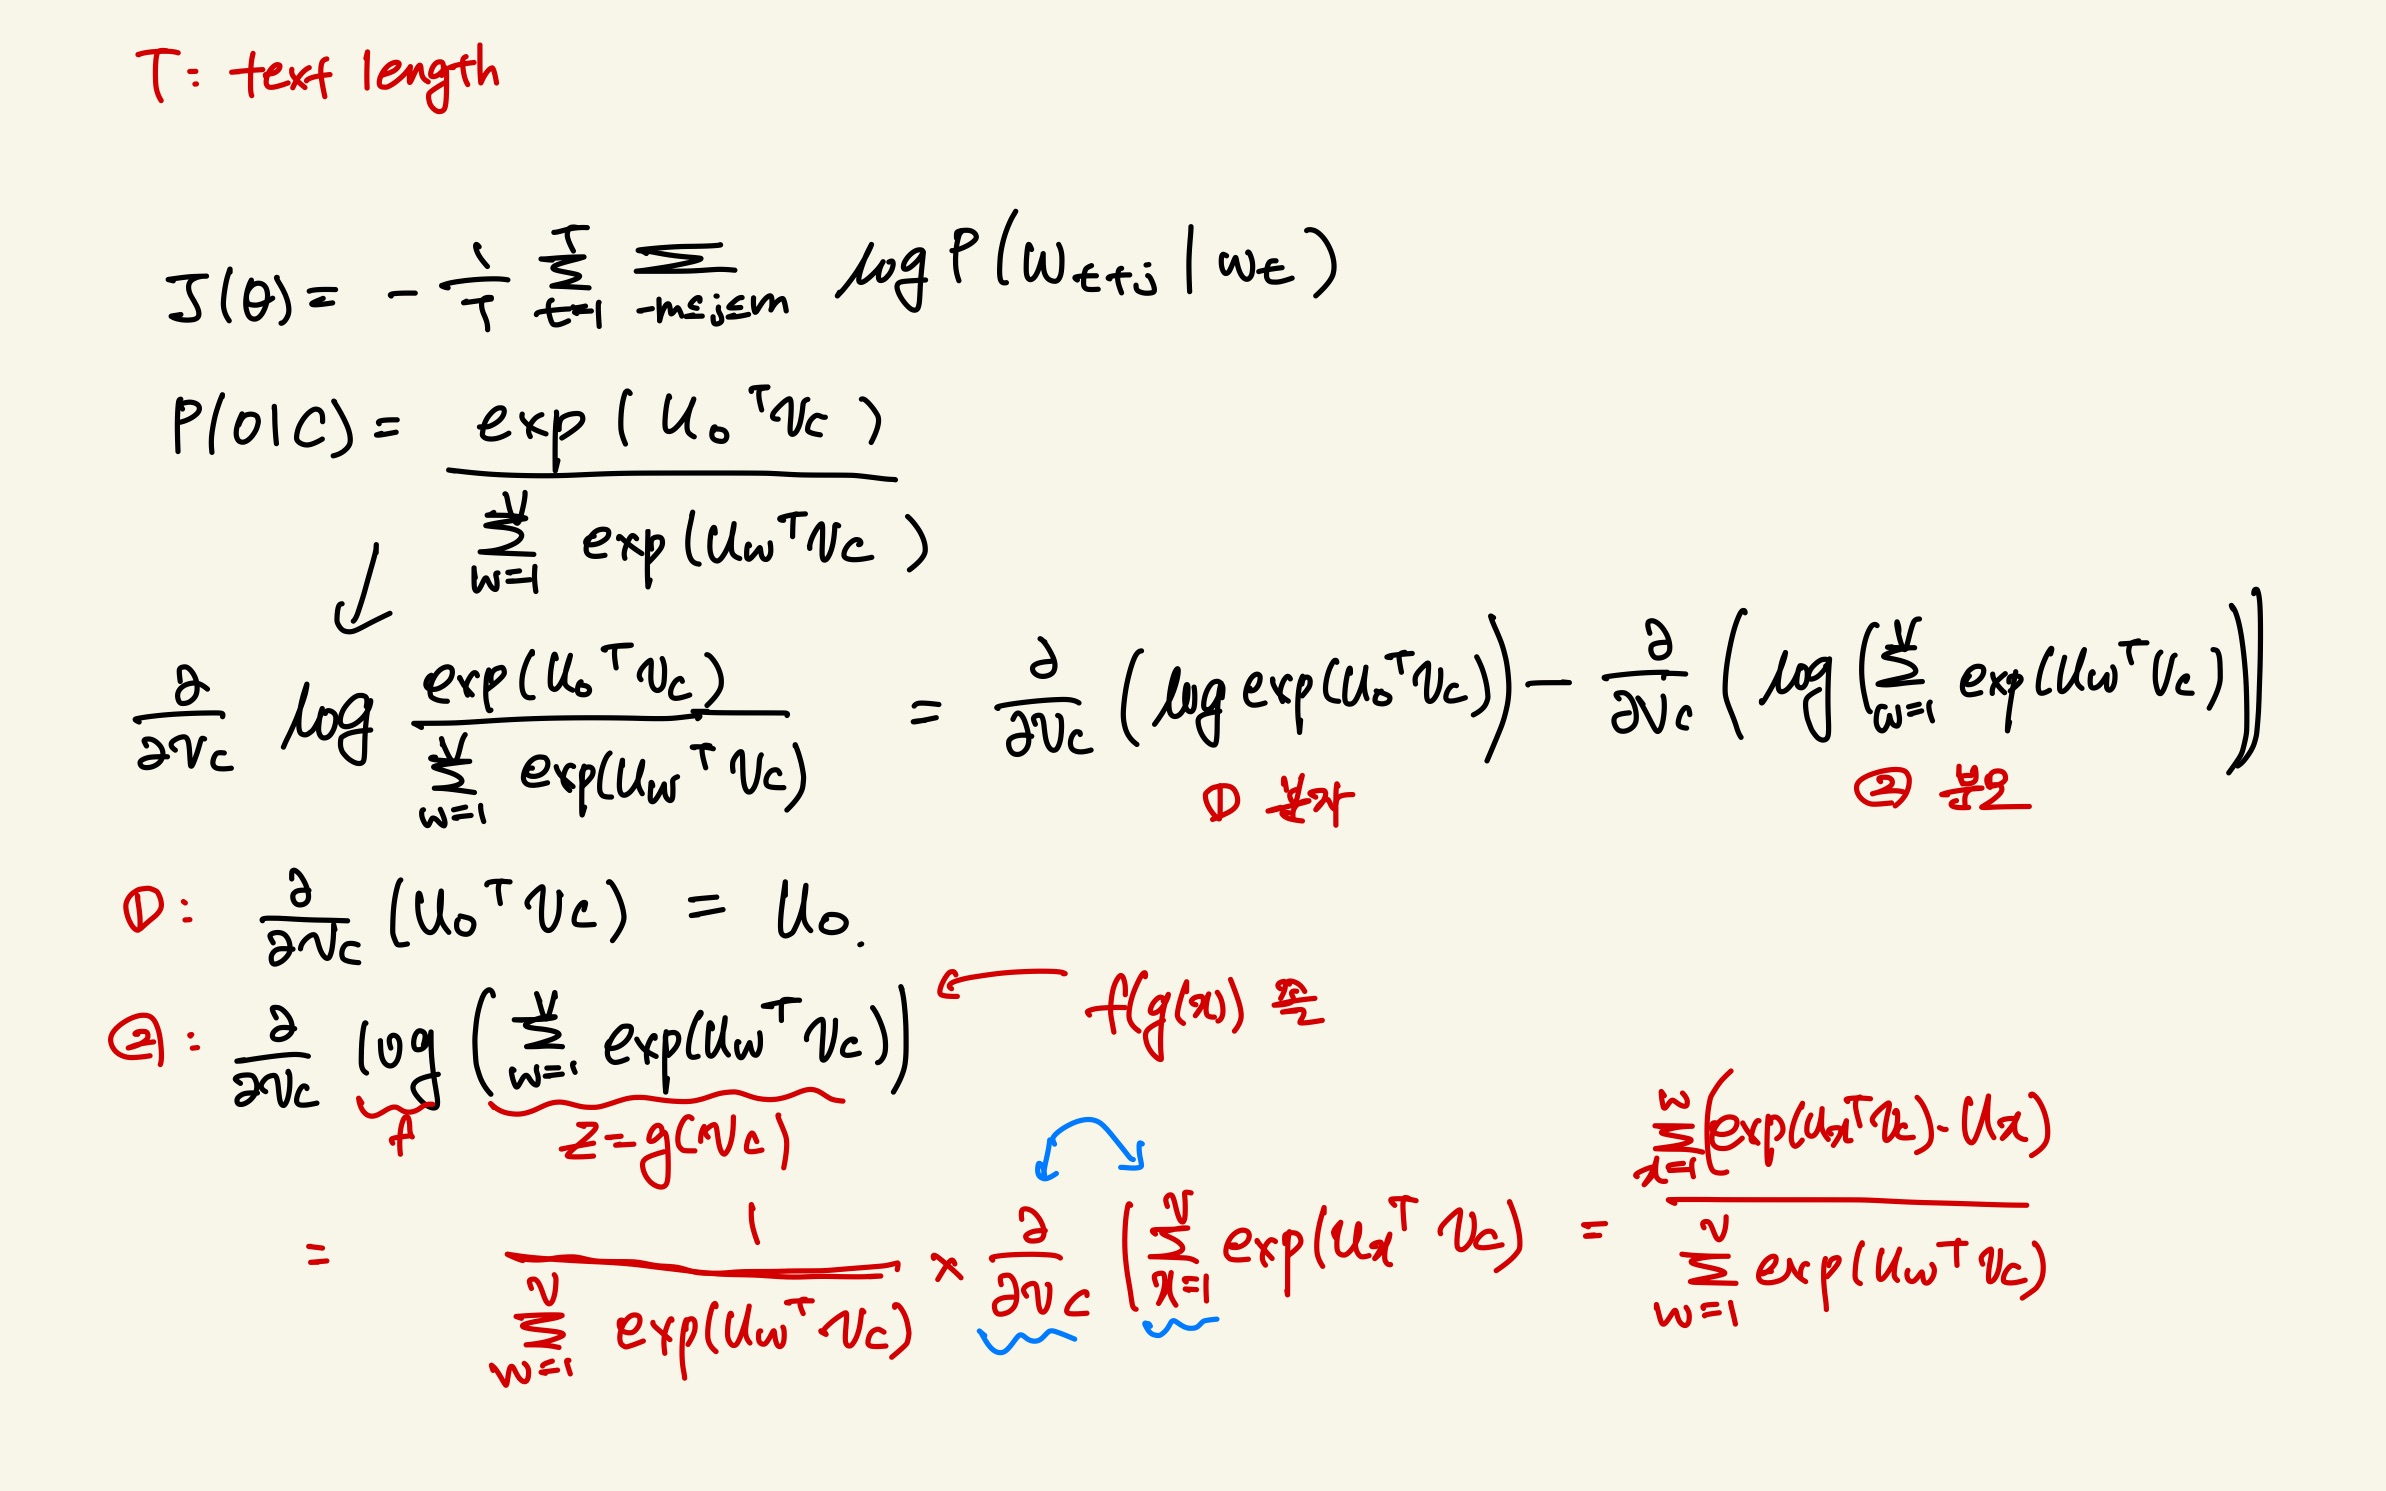 T: text length
J(θ) = - 1/T Σ_{t=1}^{T} Σ_{-m≤j≤m} log P(w_{t+j} | w_t)
P(o|c) = exp(u_o^T v_c) / Σ_{w=1}^{V} exp(u_w^T v_c)
↙
∂/∂v_c log exp(u_o^T v_c) / Σ_{w=1}^{V} exp(u_w^T v_c) = ∂/∂v_c (log exp(u_o^T v_c)) - ∂/∂v_c (log (Σ_{w=1}^{V} exp(u_w^T v_c)))
① 분자 ② 분모
①: ∂/∂v_c (u_o^T v_c) = u_o.
②: ∂/∂v_c log (Σ_{w=1}^{V} exp(u_w^T v_c)) ← f(g(x)) 꼴
f z = g(v_c)
= 1 / Σ_{w=1}^{V} exp(u_w^T v_c) × ∂/∂v_c (Σ_{x=1}^{V} exp(u_x^T v_c) = Σ_{x=1}^{n} (exp(u_x^T v_c)·u_x) / Σ_{w=1}^{V} exp(u_w^T v_c)